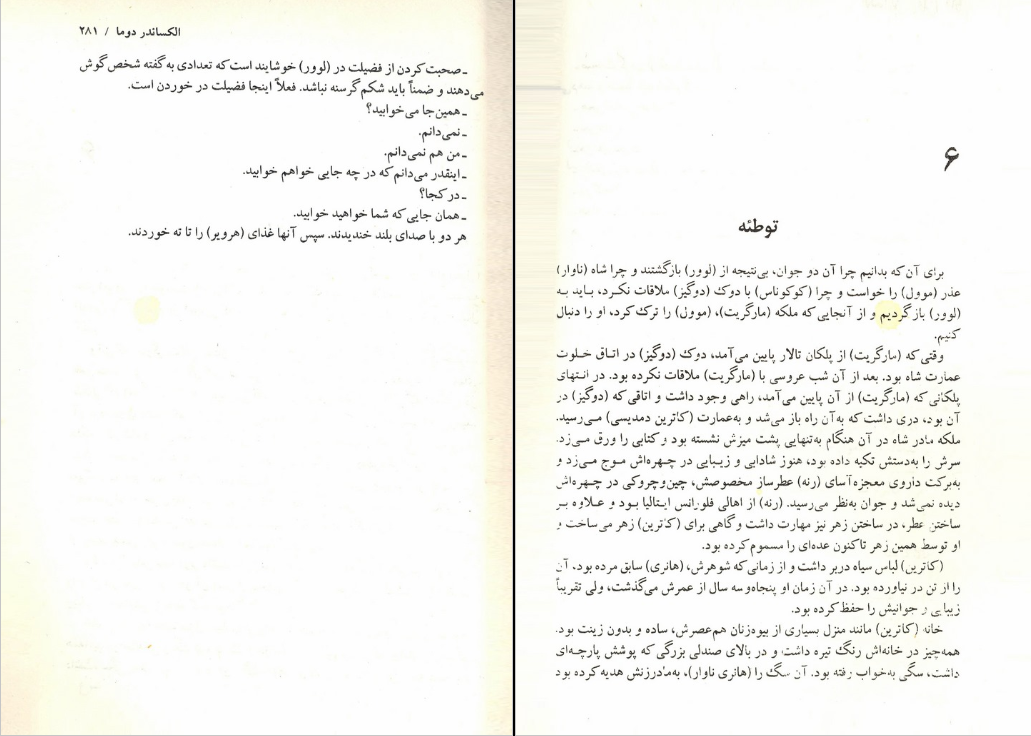 الکساندر دوما / ۲۸۱
ـ صحبت کردن از فضیلت در (لوور) خوشایند است که تعدادی به گفته شخص گوش
می‌دهند و ضمناً باید شکم گرسنه نباشد. فعلاً اینجا فضیلت در خوردن است.
ـ همین‌جا می‌خوابید؟
ـ نمی‌دانم.
ـ من هم نمی‌دانم.
ـ اینقدر می‌دانم که در چه جایی خواهم خوابید.
ـ در کجا؟
ـ همان جایی که شما خواهید خوابید.
هر دو با صدای بلند خندیدند. سپس آنها غذای (هرویر) را تا ته خوردند.
۶
توطئه
برای آن که بدانیم چرا آن دو جوان، بی‌نتیجه از (لوور) بازگشتند و چرا شاه (ناوار)
عذر (موول) را خواست و چرا (کوکوناس) با دوک (دوگیز) ملاقات نکرد، باید به
(لوور) بازگردیم و از آنجایی که ملکه (مارگریت)، (موول) را ترک کرد، او را دنبال
کنیم.
وقتی که (مارگریت) از پلکان تالار پایین می‌آمد، دوک (دوگیز) در اتاق خلوت
عمارت شاه بود. بعد از آن شب عروسی با (مارگریت) ملاقات نکرده بود. در انتهای
پلکانی که (مارگریت) از آن پایین می‌آمد، راهی وجود داشت و اتاقی که (دوگیز) در
آن بود، دری داشت که به آن راه باز می‌شد و به‌عمارت (کاترین دمدیسی) می‌رسید.
ملکه مادر شاه در آن هنگام به‌تنهایی پشت میزش نشسته بود و کتابی را ورق می‌زد.
سرش را به‌دستش تکیه داده بود، هنوز شادابی و زیبایی در چهره‌اش موج می‌زد و
به‌برکت داروی معجزه‌آسای (رنه) عطرساز مخصوصش، چین‌وچروکی در چهره‌اش
دیده نمی‌شد و جوان به‌نظر می‌رسید. (رنه) از اهالی فلورانس ایتالیا بود و علاوه بر
ساختن عطر، در ساختن زهر نیز مهارت داشت و گاهی برای (کاترین) زهر می‌ساخت و
او توسط همین زهر تاکنون عده‌ای را مسموم کرده بود.
(کاترین) لباس سیاه دربر داشت و از زمانی که شوهرش، (هانری) سابق مرده بود، آن
را از تن در نیاورده بود. در آن زمان او پنجاه‌وسه سال از عمرش می‌گذشت، ولی تقریباً
زیبایی و جوانیش را حفظ کرده بود.
خانه (کاترین) مانند منزل بسیاری از بیوه‌زنان هم‌عصرش، ساده و بدون زینت بود.
همه‌چیز در خانه‌اش رنگ تیره داشت و در بالای صندلی بزرگی که پوشش پارچه‌ای
داشت، سگی به‌خواب رفته بود. آن سگ را (هانری ناوار)، به‌مادرزنش هدیه کرده بود